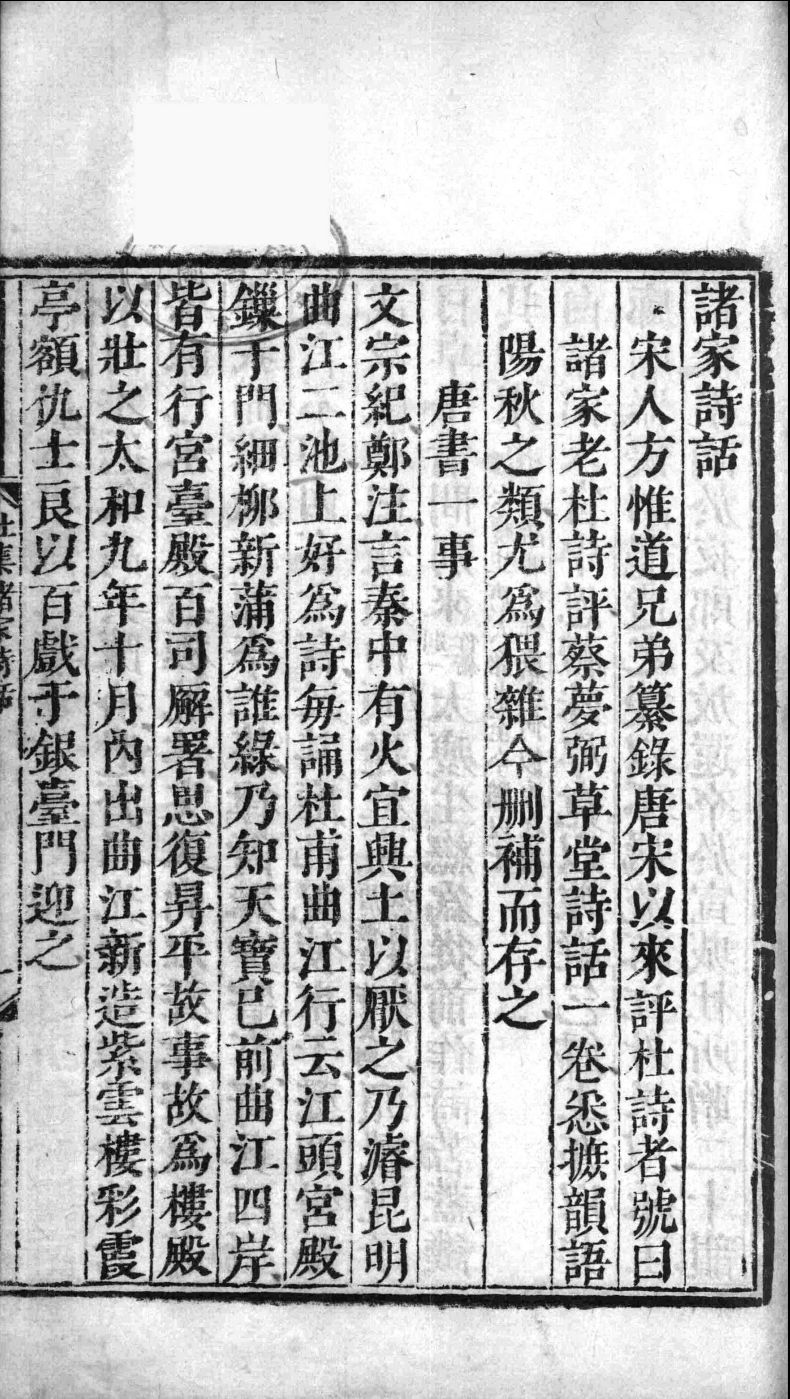 諸家詩話
宋人方惟道兄弟纂錄唐宋以來評杜詩者號曰
諸家老杜詩評蔡夢弼草堂詩話一卷悉摭韻語
陽秋之類尤爲猥雜今刪補而存之
唐書一事
文宗紀鄭注言秦中有火宜興土以厭之乃濬昆明
曲江二池上好爲詩每誦杜甫曲江行云江頭宮殿
鏁千門細柳新蒲爲誰綠乃知天寶已前曲江四岸
皆有行宮臺殿百司廨署思復昇平故事故爲樓殿
以壯之太和九年十月內出曲江新造紫雲樓彩霞
亭額仇士良以百戲于銀臺門迎之
杜集諸家詩話
一